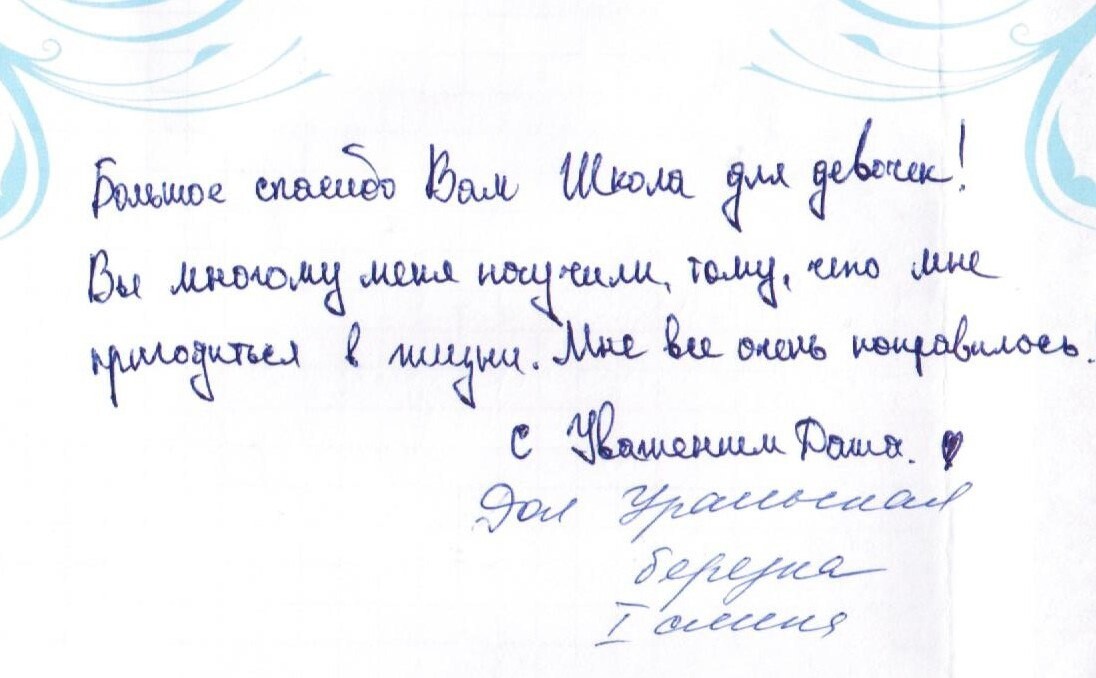 Большое спасибо Вам Школа для девочек!
Вы многому меня научили, тому, что мне
пригодиться в жизни. Мне все очень понравилось.
С Уважением Даша.
Дол Уральская
березка
I смена